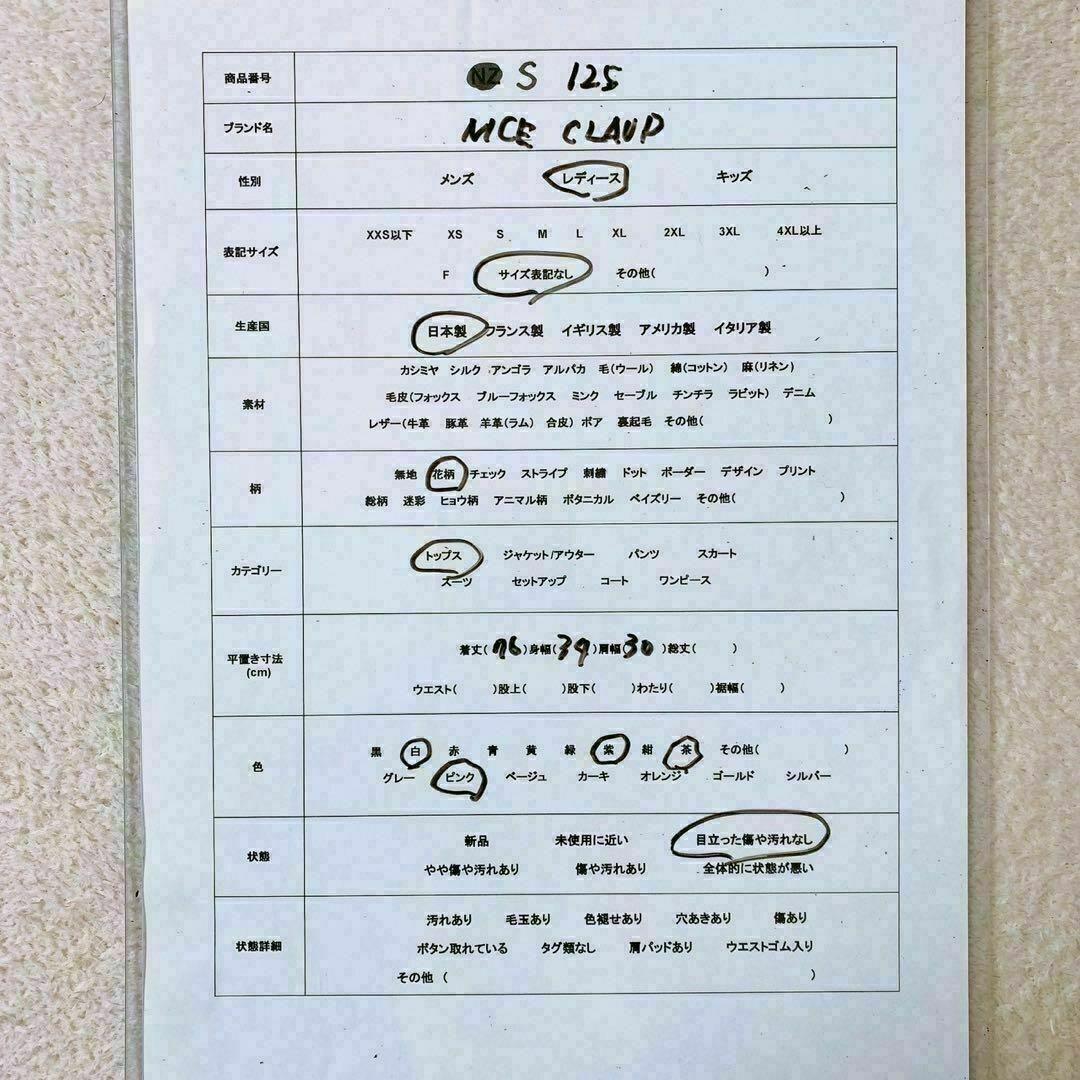 商品番号 NZ S 125
ブランド名 NICE CLAUP
性別 メンズ レディース キッズ
XXS以下 XS S M L XL 2XL 3XL 4XL以上
表記サイズ
F サイズ表記なし その他( )
生産国 日本製 フランス製 イギリス製 アメリカ製 イタリア製
カシミヤ シルク アンゴラ アルパカ 毛(ウール) 綿(コットン) 麻(リネン)
毛皮(フォックス ブルーフォックス ミンク セーブル チンチラ ラビット) デニム
素材
レザー(牛革 豚革 羊革(ラム) 合皮) ボア 裏起毛 その他( )
無地 花柄 チェック ストライプ 刺繍 ドット ボーダー デザイン プリント
柄
総柄 迷彩 ヒョウ柄 アニマル柄 ボタニカル ペイズリー その他( )
トップス ジャケット/アウター パンツ スカート
カテゴリー
スーツ セットアップ コート ワンピース
着丈(76)身幅(39)肩幅(30)総丈( )
平置き寸法
(cm)
ウエスト( )股上( )股下( )わたり( )裾幅( )
黒 白 赤 青 黄 緑 紫 紺 茶 その他( )
色
グレー ピンク ベージュ カーキ オレンジ ゴールド シルバー
新品 未使用に近い 目立った傷や汚れなし
状態
やや傷や汚れあり 傷や汚れあり 全体的に状態が悪い
汚れあり 毛玉あり 色褪せあり 穴あきあり 傷あり
状態詳細 ボタン取れている タグ類なし 肩パッドあり ウエストゴム入り
その他 ( )